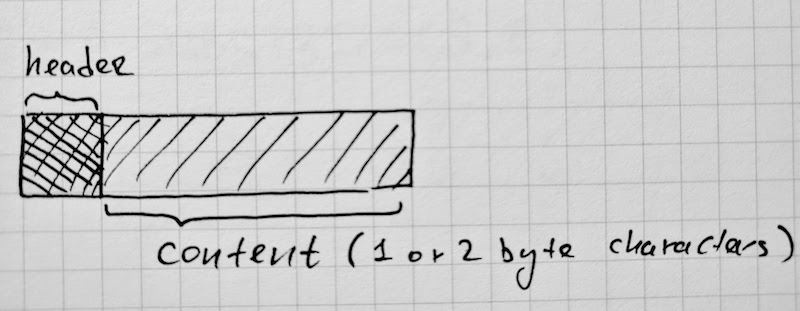 header
content (1 or 2 byte characters)